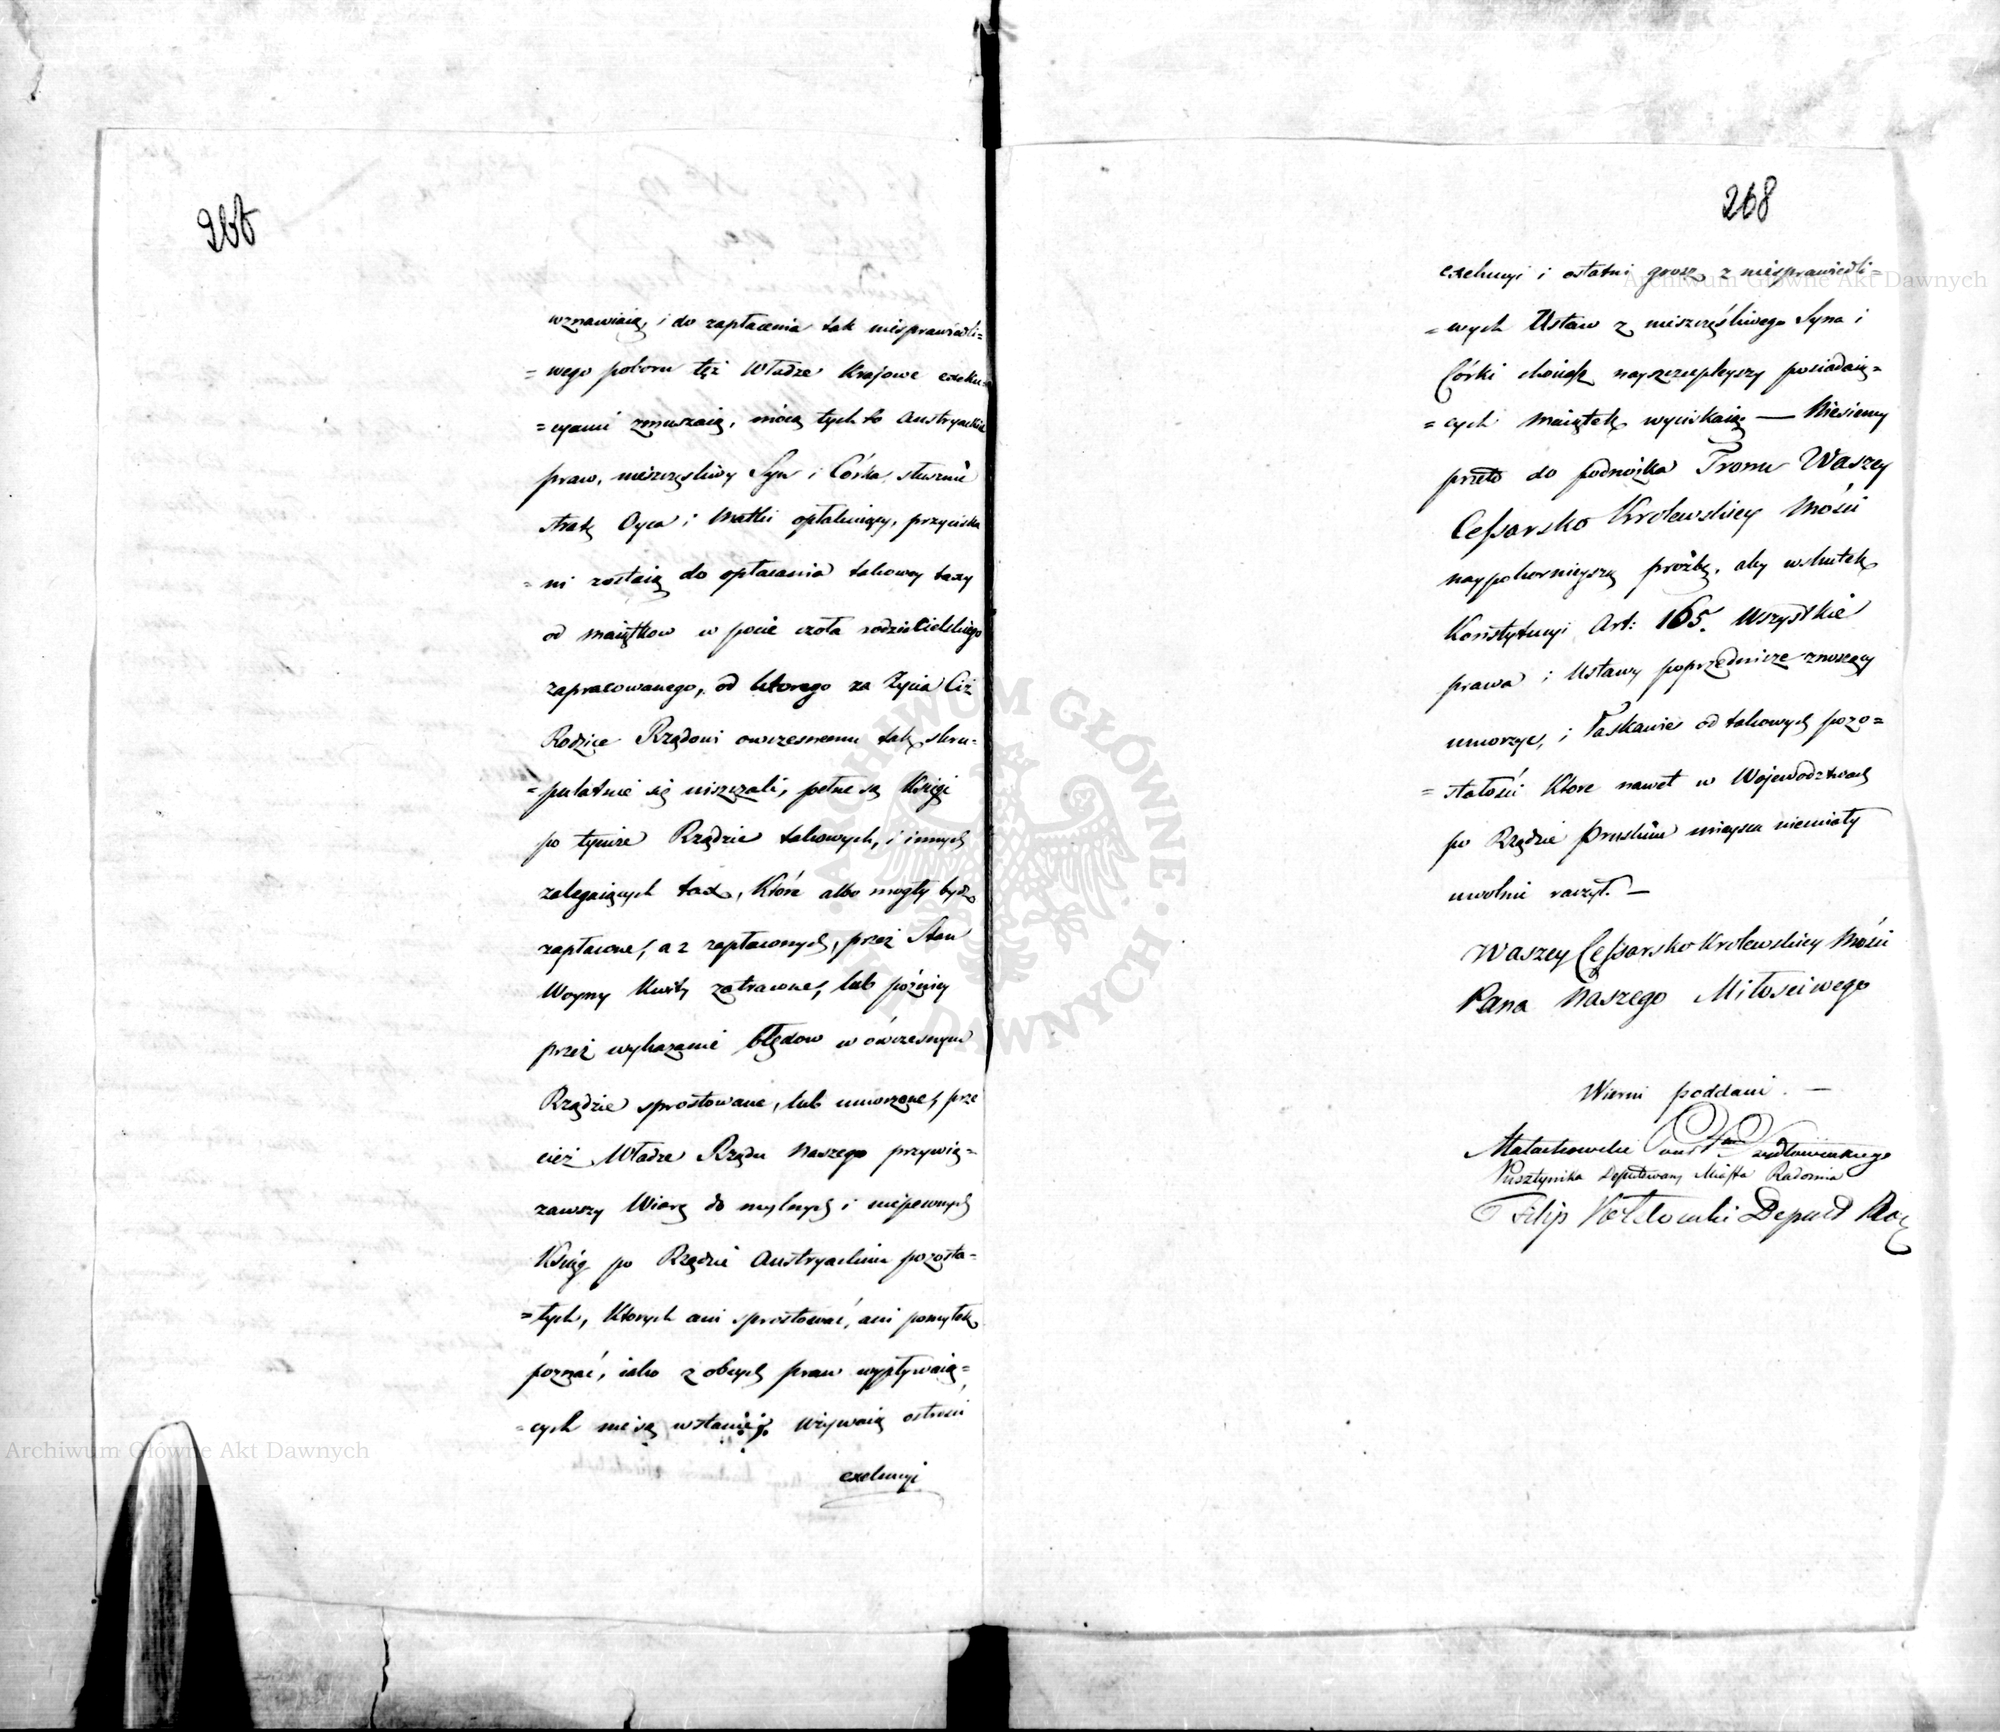 267
wznawiaią, i do zapłacenia tak niesprawiedli=
=wego poboru też Władze Krajowe exeku=
=cyami zmuszaią, mocą tych to Austryackich
praw, nieszczęśliwy Syn i Córka, słusznie
stratę Oyca i Matki opłakuiący, przyciska
=ni zostaią do opłacania takowey taxy
od maiątkow w pocie czoła rodzicielskiego
zapracowanego, od ktorego za Życia Ciż
Rodzice Rządowi owczesnemu tak skru=
=pulatnie się uiszczali, pełne są Księgi
po tymże Rządzie takowych, i innych
zalegaiących tax, które albo mogły bydź
zapłacone, a z zapłaconych, przez Stan
Woyny Kwity zatracone, lub pózniey
przez wykazanie błędow w ówczesnym
Rządzie sprostowane, lub umorzone, prze
cież Władze Rządu Naszego przywią=
zawszy Wiarę do mylnych i niepewnych
Ksiąg po Rządzie Austryackim pozosta=
=łych, Ktorych ani sprostować, ani pomyłek
poznać, iako z obcych praw wypływaią=
=cych nie są wstanie, używaią ostrości
exekucyi
268
exekucyi i ostatni grosz z niesprawiedli=
=wych Ustaw z nieszczęśliwego Syna i
Córki choćiaż nayszczupleyszy posiadaią=
=cych Maiątek wyciskaią — Niesiemy
przeto do podnóżka Tronu Waszey
Cessarsko Krolewskiey Mości
naypokornieyszą prożbę, aby wskutek
Konstytucyi Art: 165. Wszystkie
prawa i Ustawy poprzednicze znoszący
umorzyć, i Łaskawie od takowych pozo=
=stałości Ktore nawet w Wojewodztwach
po Rządzie Pruskim mieysca niemiały
uwolnić raczył. —
Waszey Cessarsko Krolewskiey Mości
Pana Naszego Miłosciwego
Wierni poddani. —
Małachowski
Deputowany Miasta Radomia
Filip Deput
Archiwum Główne Akt Dawnych
Archiwum Główne Akt Dawnych
ARCHIWUM GŁÓWNE AKT DAWNYCH